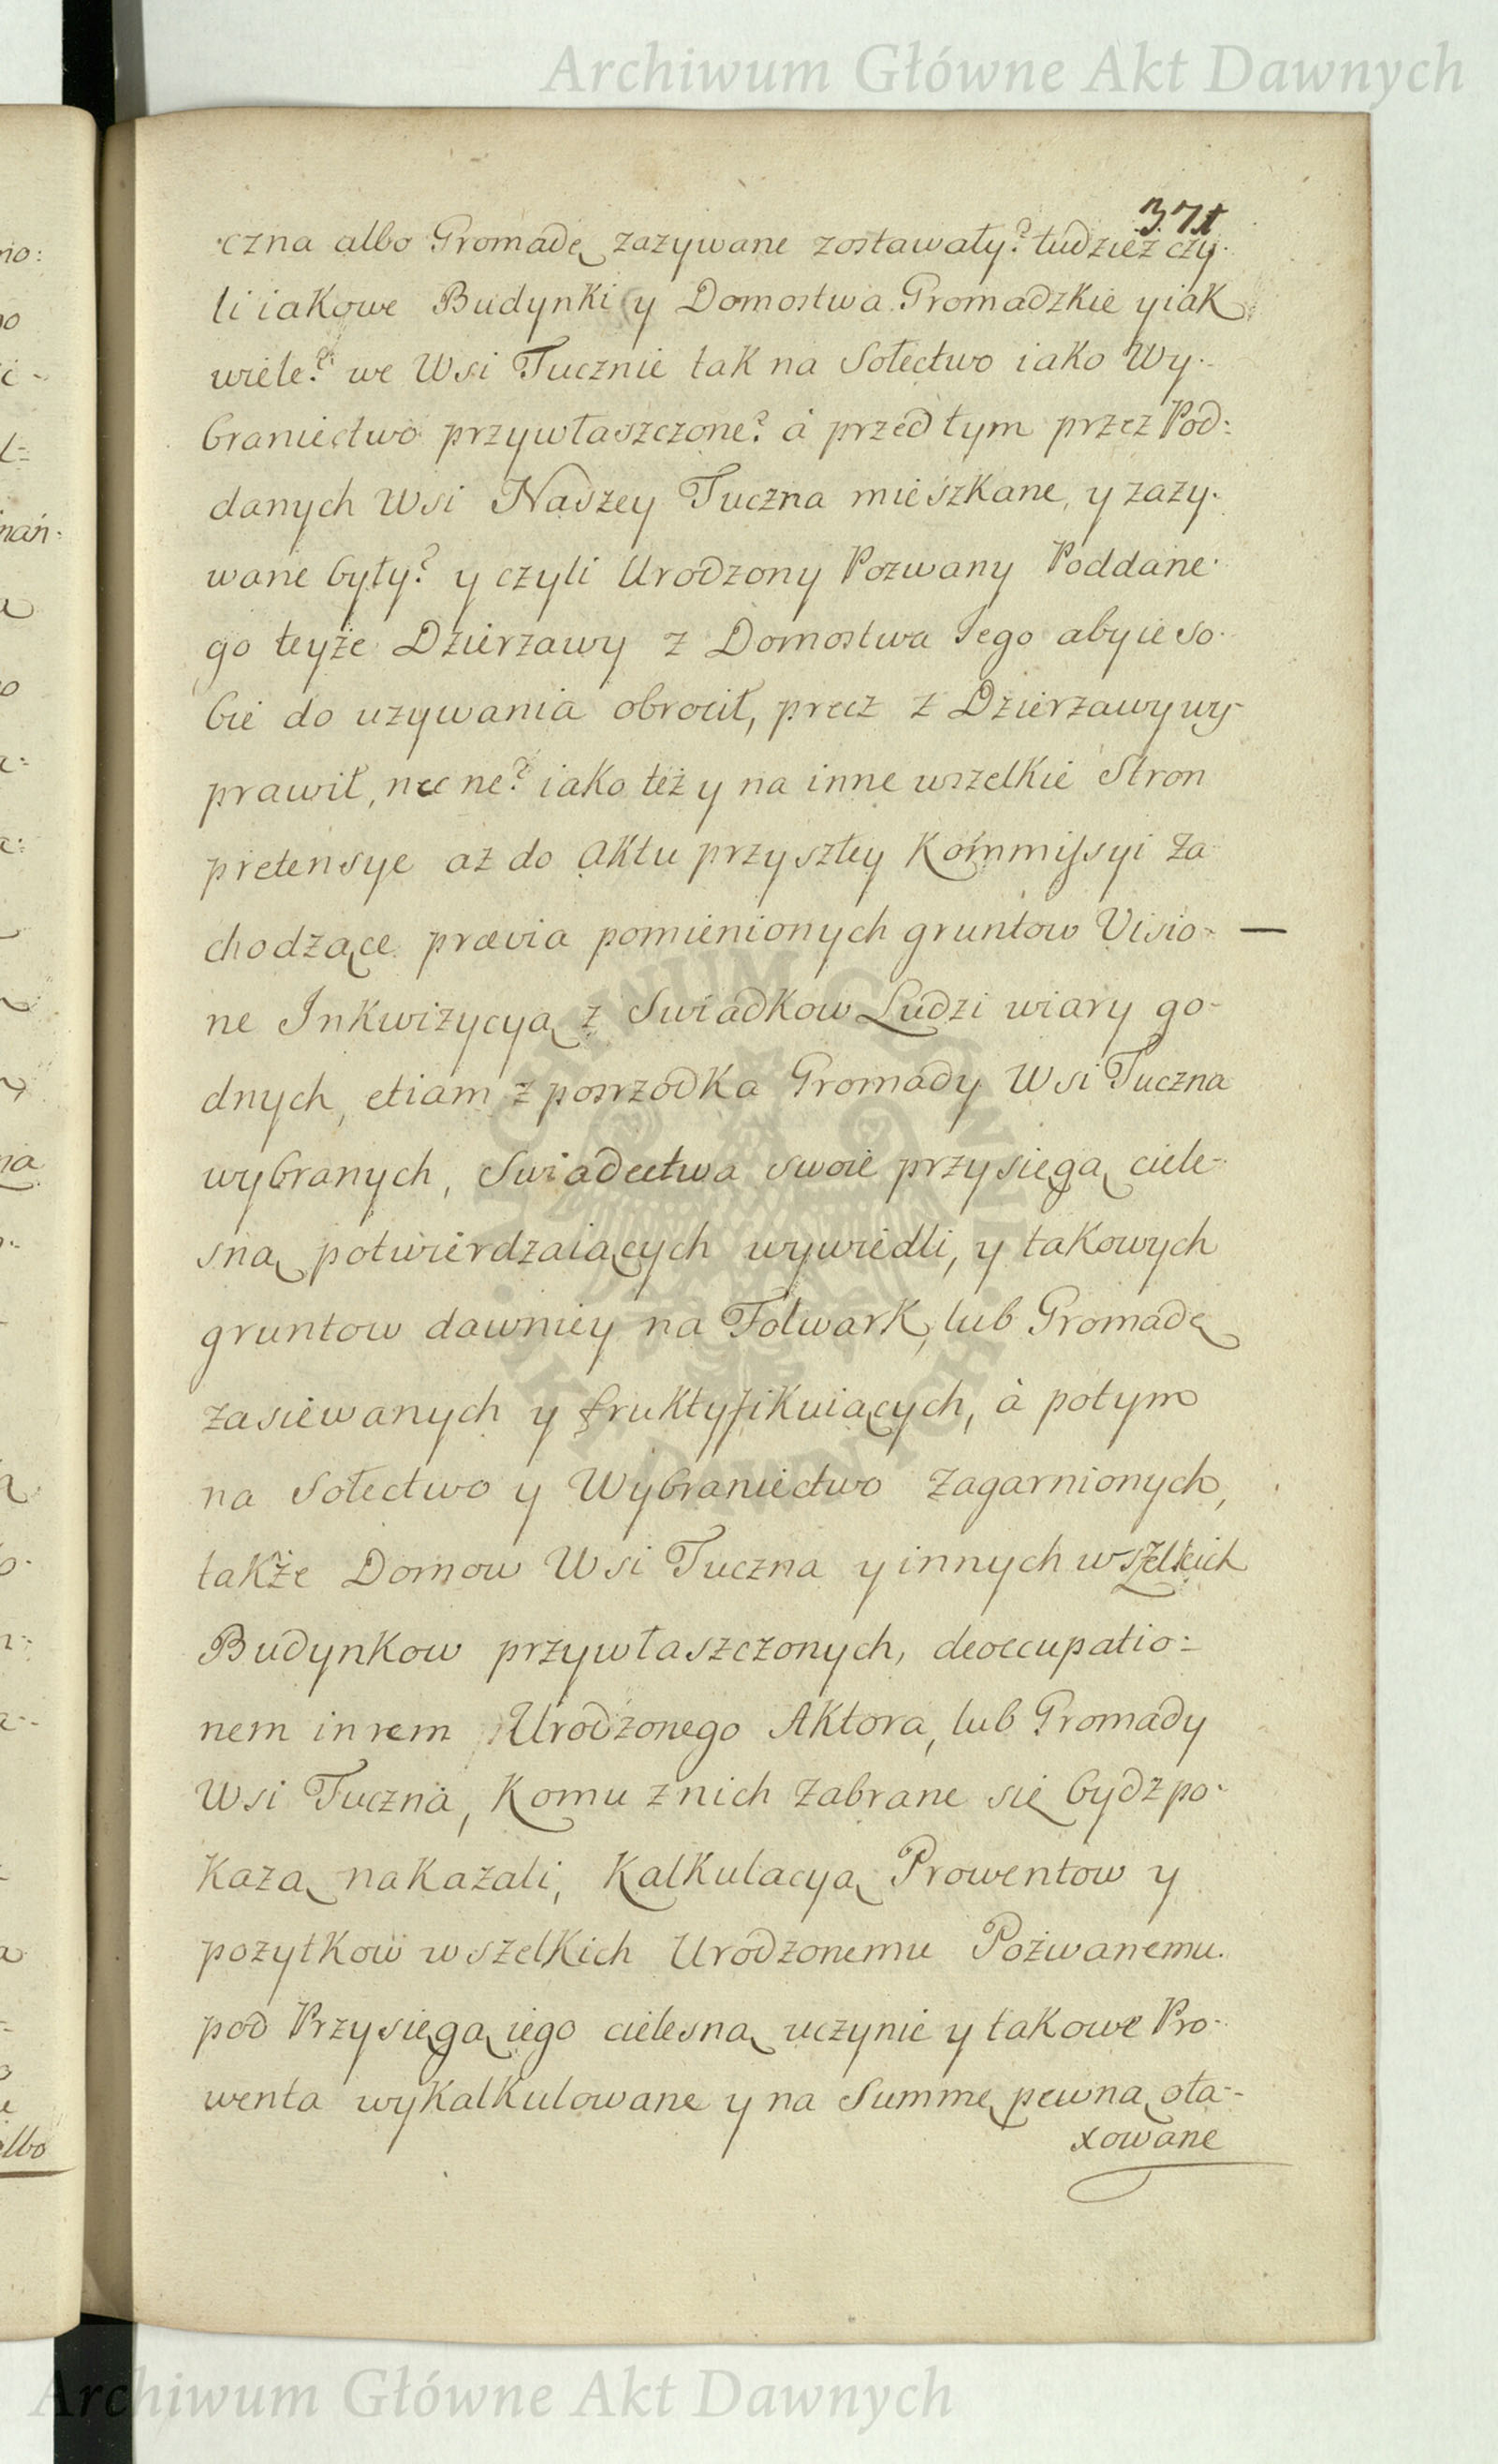 Archiwum Główne Akt Dawnych
371
czna albo Gromadę zazywane zostawały? tudzież czy-
li iakowe Budynki y Domostwa Gromadzkie y iak
wiele? we Wsi Tucznie tak na Sołectwo iako Wy-
braniectwo przywłaszczone? à przed tym przez Pod:
danych Wsi Naszey Tuczna mieszkane, y zazy-
wane były? y czyli Urodzony Pozwany Poddane-
go teyże Dzierzawy z Domostwa Jego aby ie so-
bie do uzywania obrocił, precz z Dzierzawy wy-
prawił, nec ne? iako też y na inne wszelkie Stron
pretensye aż do Aktu przyszłey Kommissyi za
chodzące prævia pomienionych gruntow Visio- —
ne Inkwizycyą z Swiadkow Ludzi wiary go-
dnych, etiam z posrzodka Gromady Wsi Tuczna
wybranych, Swiadectwa swoie przysięgą ciele-
sną potwierdzaiących wywiedli, y takowych
gruntow dawniey na Folwark, lub Gromadę
zasiewanych y fruktyfikuiących, à potym
na Sołectwo y Wybraniectwo zagarnionych,
także Domow Wsi Tuczna y innych wszelkich
Budynkow przywłaszczonych, deoccupatio=
nem in rem Urodzonego Aktora, lub Gromady
Wsi Tuczna, Komu z nich zabrane się bydz po-
każą nakazali, Kalkulacyą Prowentow y
pozytkow wszelkich Urodzonemu Pozwanemu
pod Przysięgą iego cielesną uczynic y takowe Pro-
wenta wykalkulowane y na Summę pewną ota-
xowane
albo
Archiwum Główne Akt Dawnych